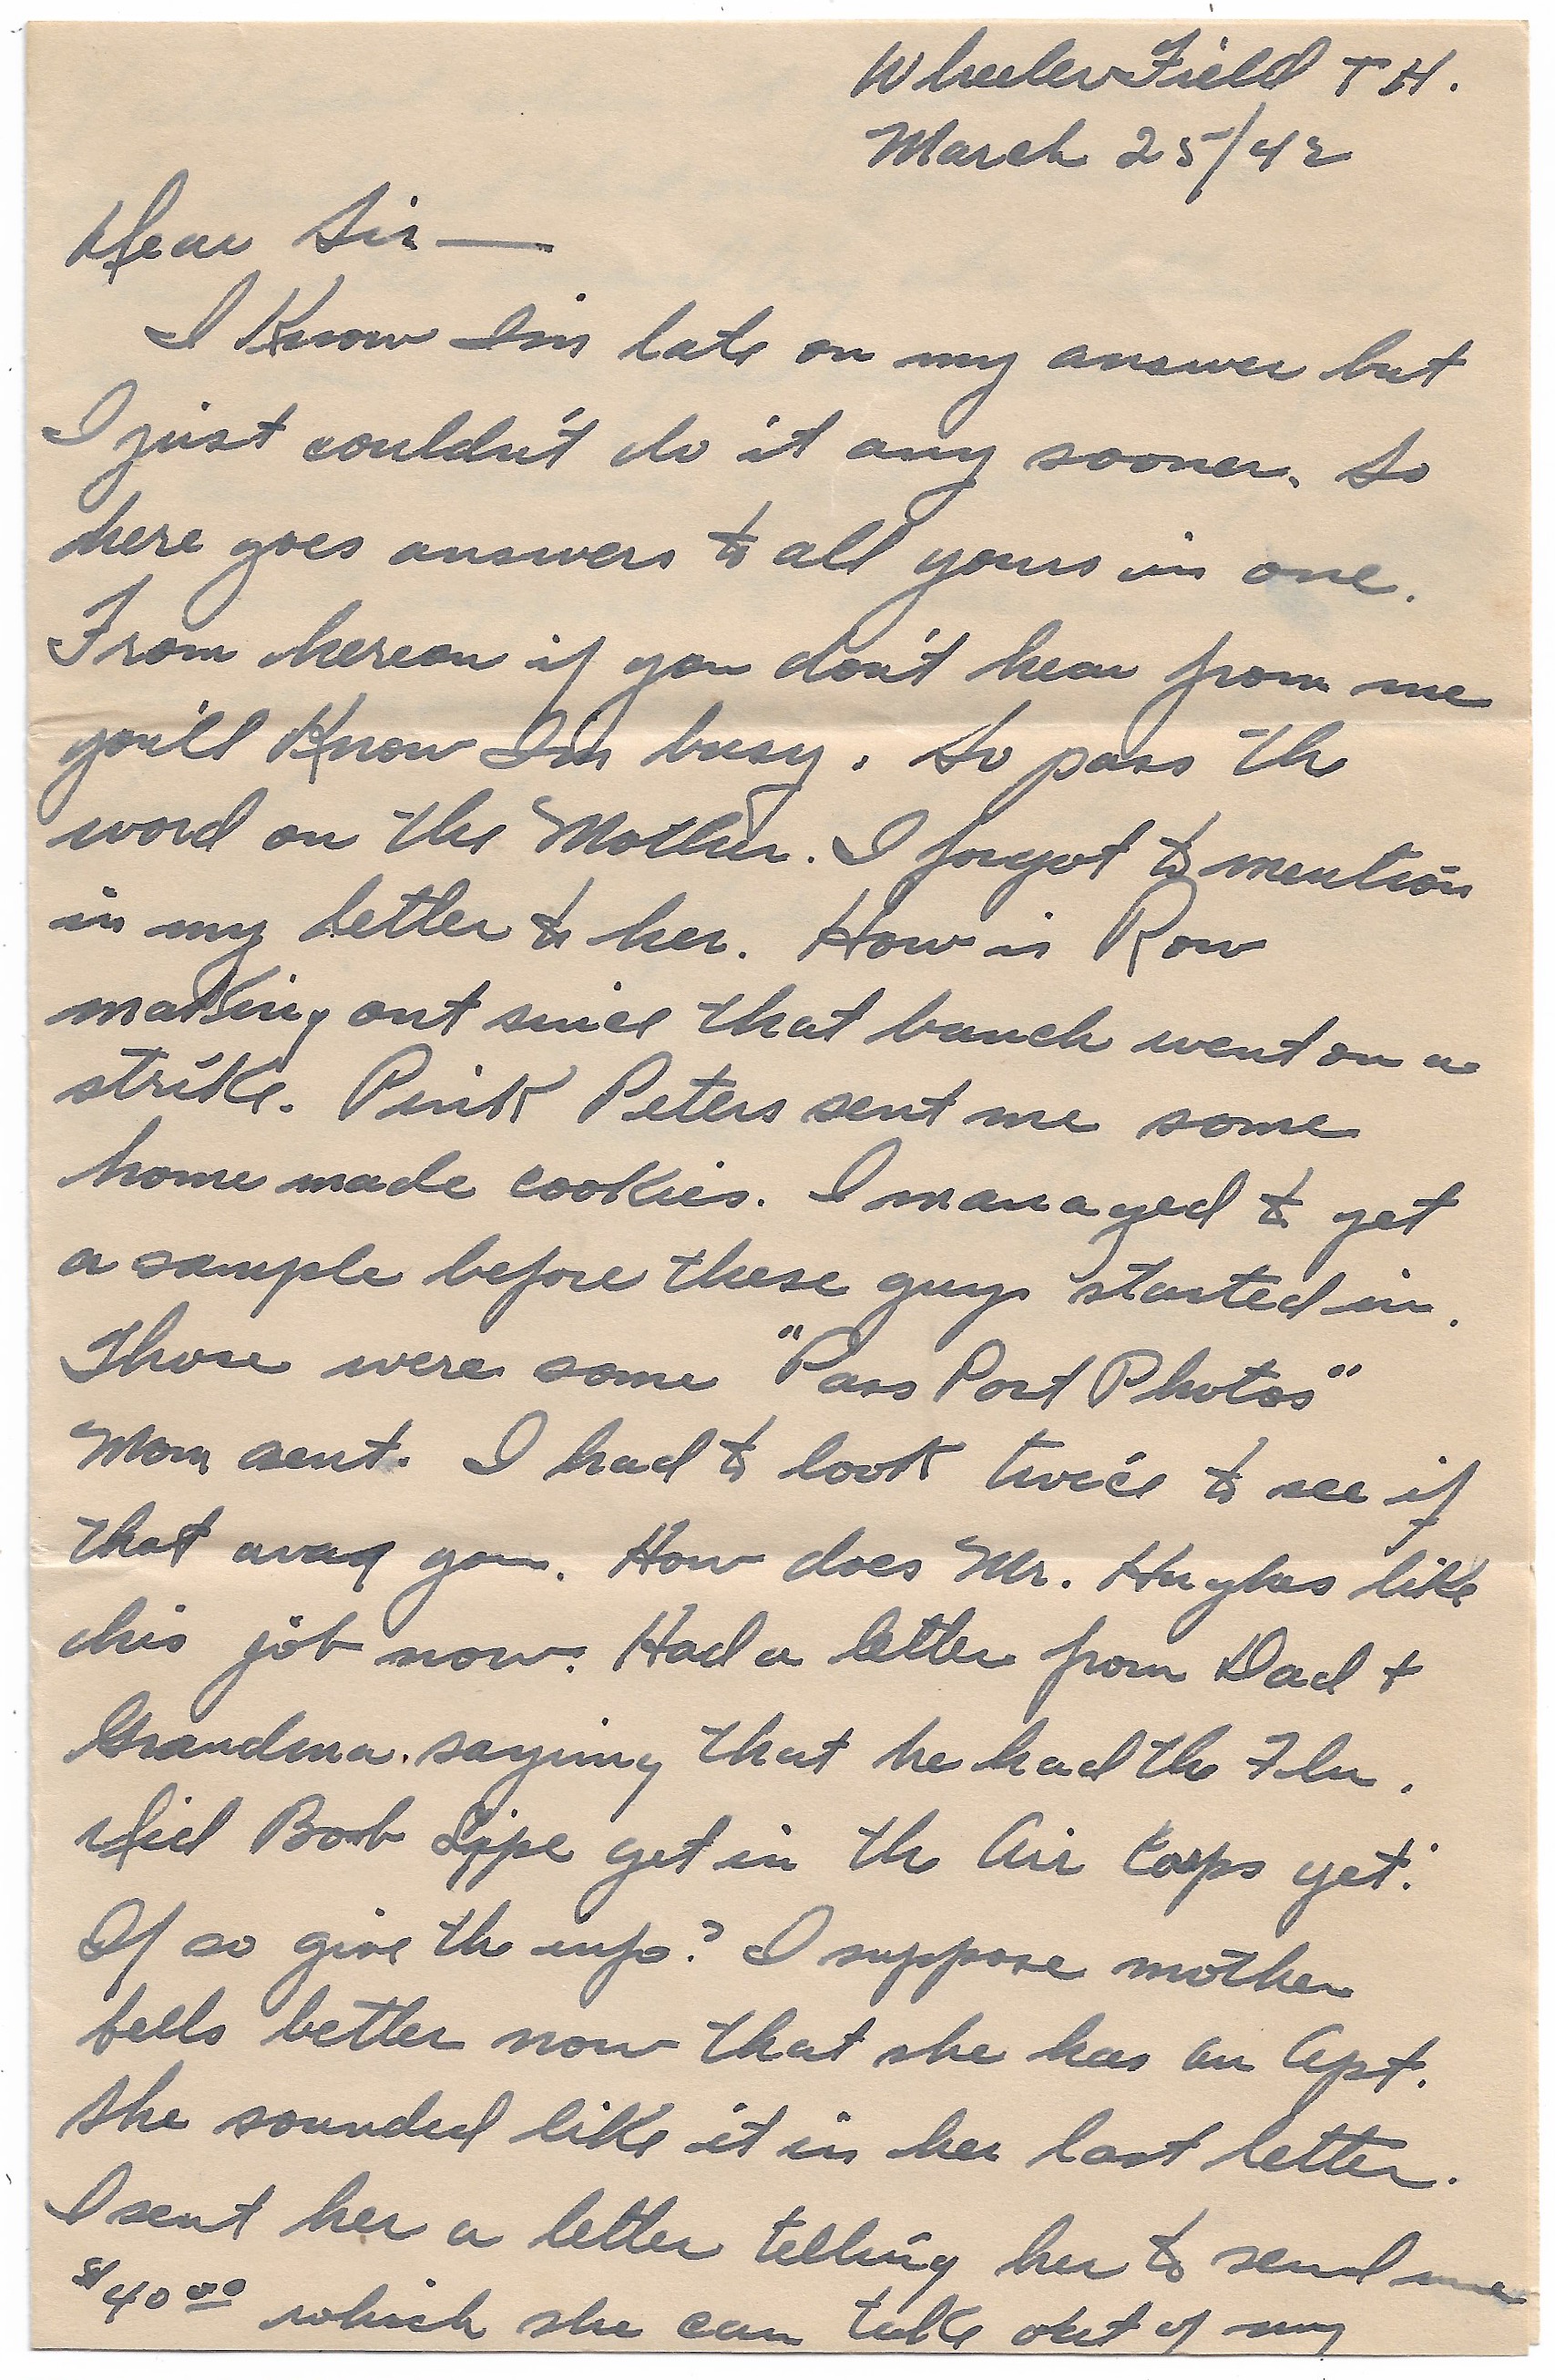 Wheeler Field T H.
March 25/42
Dear Sir —
I Know I'm late on my answer but
I just couldn't do it any sooner. So
here goes answers to all yours in one.
From hereon if you don't hear from me
you'll Know I'm busy. So pass the
word on the Mother. I forgot to mention
in my letter to her. How is Row
making out since that bunch went on a
strike. Pink Peters sent me some
home made cookies. I managed to get
a sample before these guys started in.
Those were some "Pass Port Photos"
Mom sent. I had to look twice to see if
that was you. How does Mr. Hughes like
his job now. Had a letter from Dad +
Grandma. saying that he had the Flu.
Did Bob Lype get in the Air Corps yet.
If so give the info? I suppose mother
fells better now that she has an Apt.
She sounded like it in her last letter.
I sent her a letter telling her to send me
$40.00 which she can take out of my